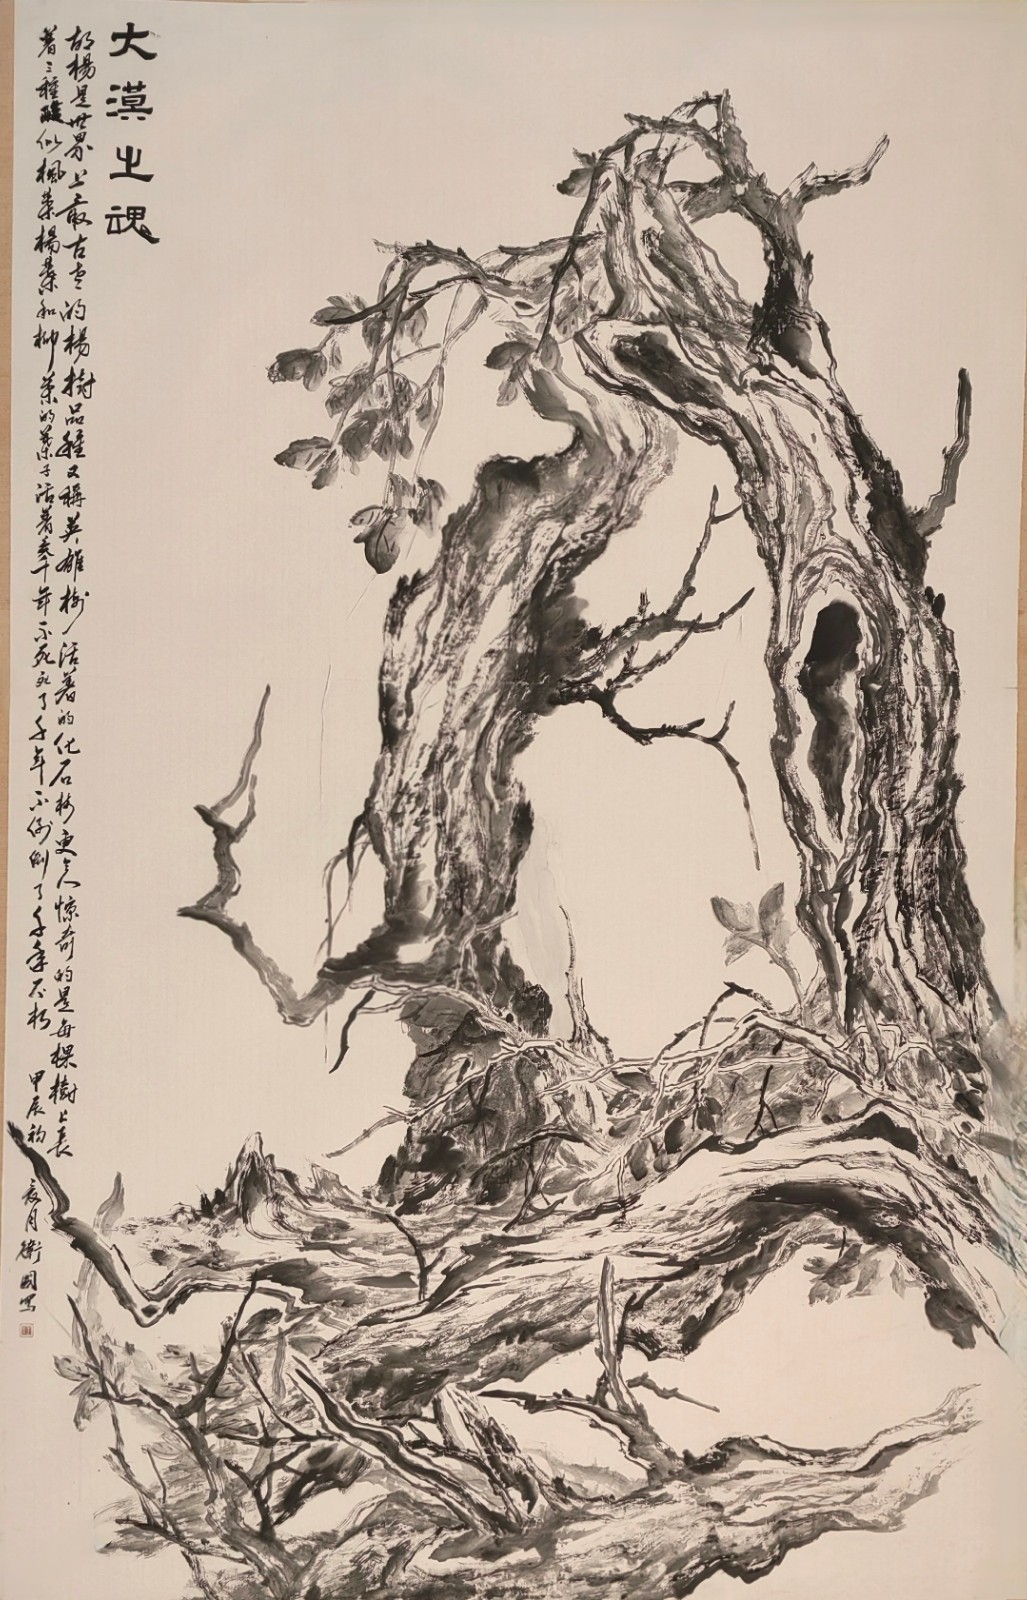 大漠之魂
胡楊是世界上最古老的楊樹品種又稱英雄樹活著的化石樹更令人惊奇的是每棵樹上長
着三種酷似楓葉楊葉和柳葉的葉子活着千年不死死了千年不倒倒了千年不朽 甲辰初
夏月衛國寫